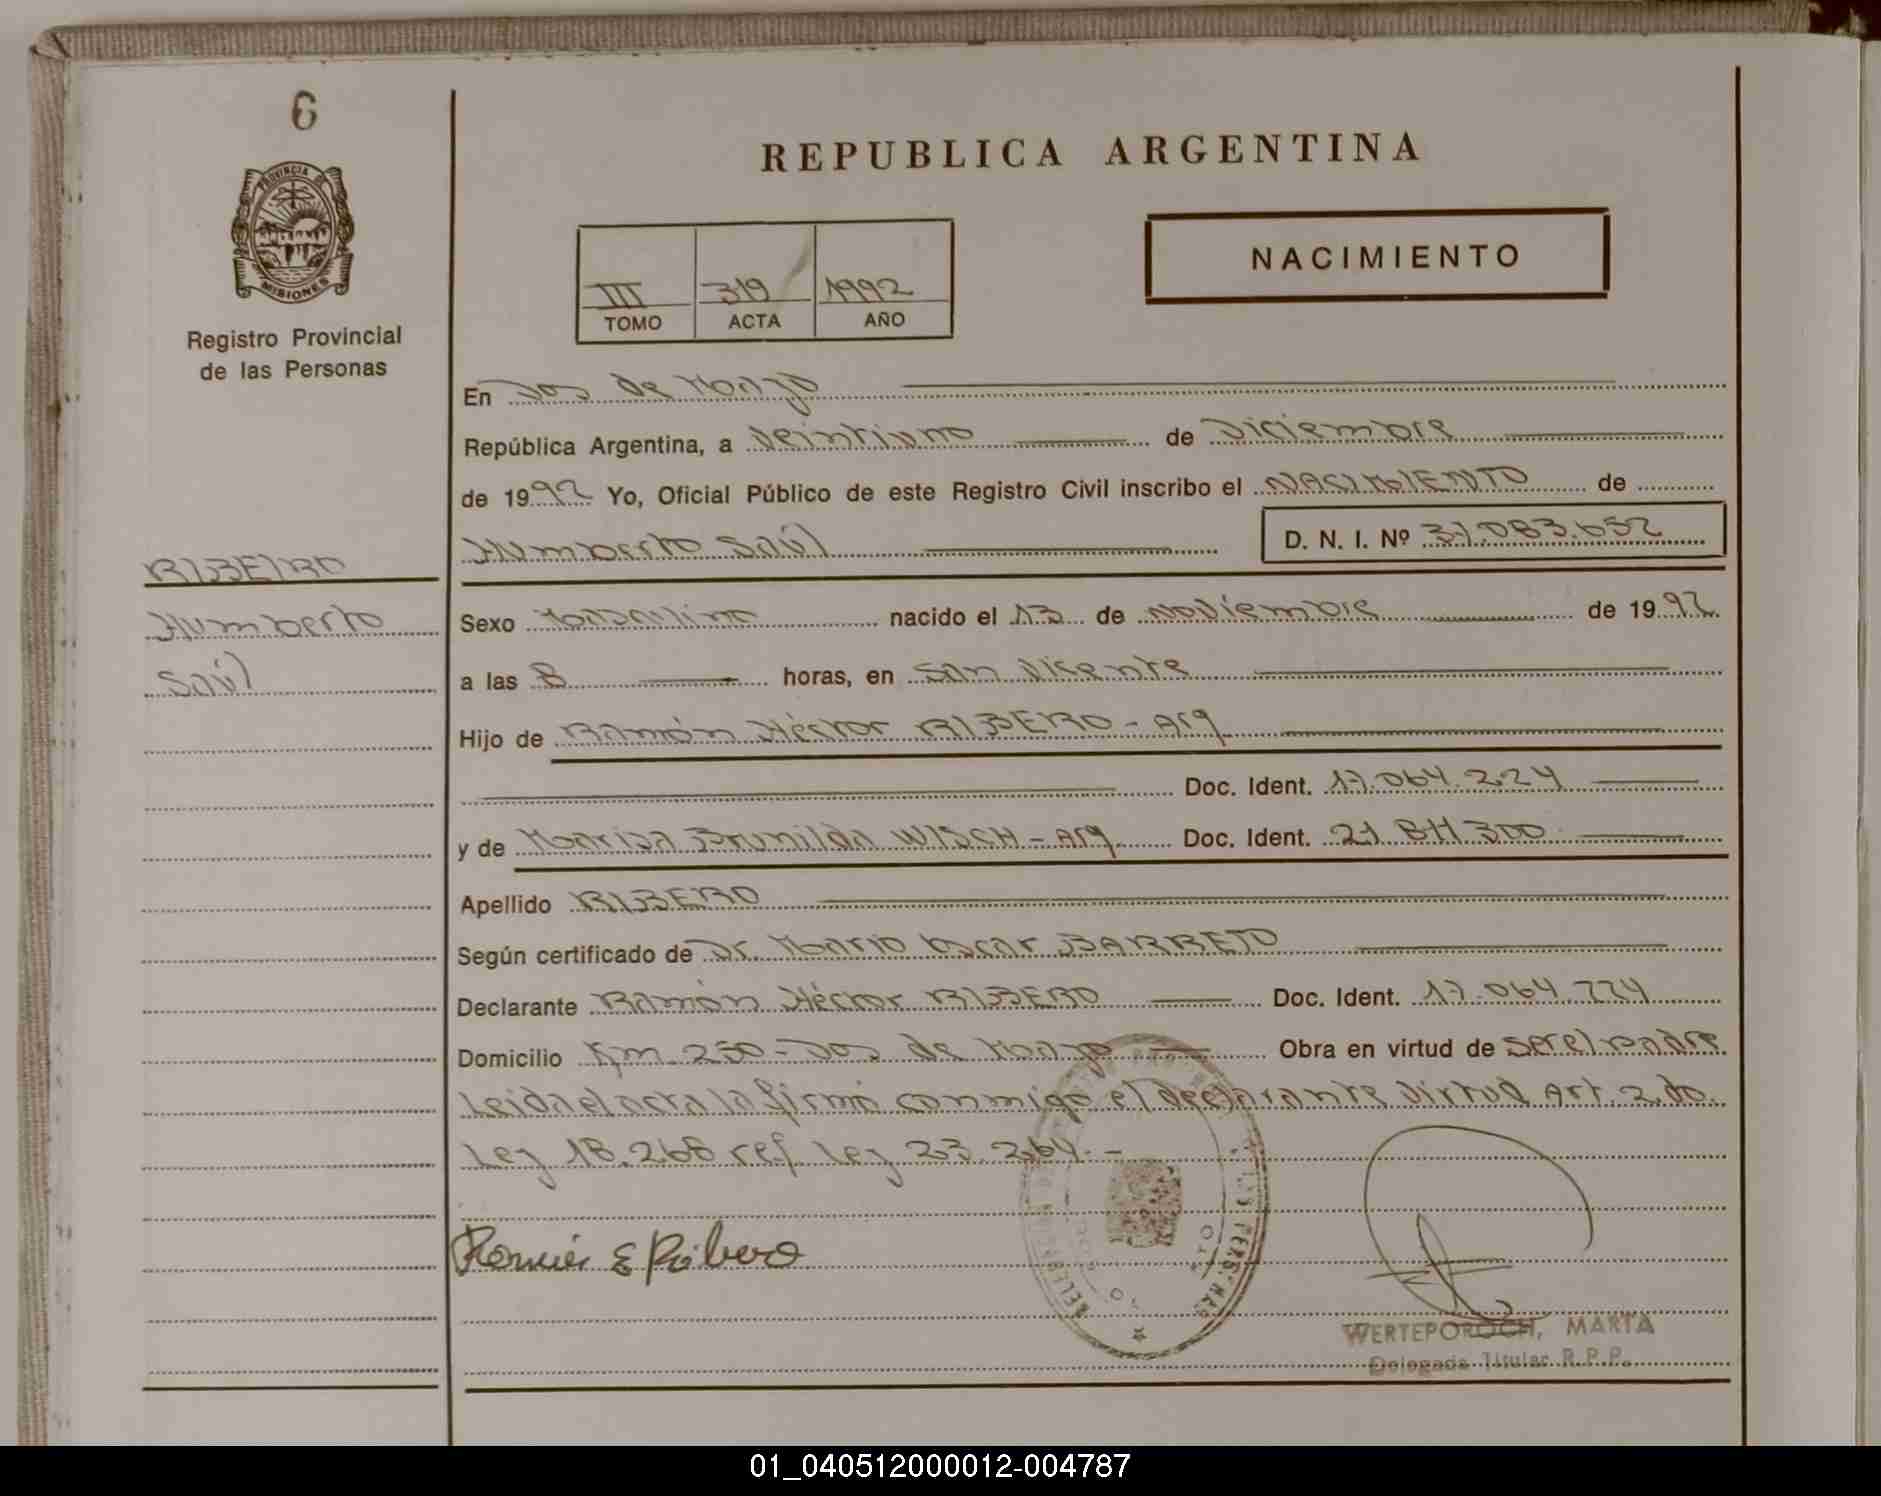 6
PROVINCIA DE
MISIONES
Registro Provincial
de las Personas
RIBEIRO
Humberto
Saúl
REPUBLICA ARGENTINA
NACIMIENTO
III 319 1992
TOMO ACTA AÑO
En Dos de Mayo
República Argentina, a Veintiuno de Diciembre
de 1992 Yo, Oficial Público de este Registro Civil inscribo el NACIMIENTO de
Humberto Saúl D. N. I. Nº 37.083.652
Sexo Masculino nacido el 13 de Noviembre de 1992
a las 8 horas, en San Vicente
Hijo de Ramón Héctor RIBERO - Arg
Doc. Ident. 17.064.224
y de Marisa Brunilda WISCH - Arg. Doc. Ident. 21.811.300
Apellido RIBERO
Según certificado de Dr. Mario Oscar BARRETO
Declarante Ramón Héctor RIBERO Doc. Ident. 17.064.224
Domicilio Km. 250 - Dos de Mayo Obra en virtud de ser el padre
Leida el acta la firma conmigo el declarante virtud Art. 2.do.
Ley 18.268 ref. Ley 23.264.-
Ribero
WERTEPOROCH, MARTA
Delegada Titular R.P.P.
01_040512000012-004787